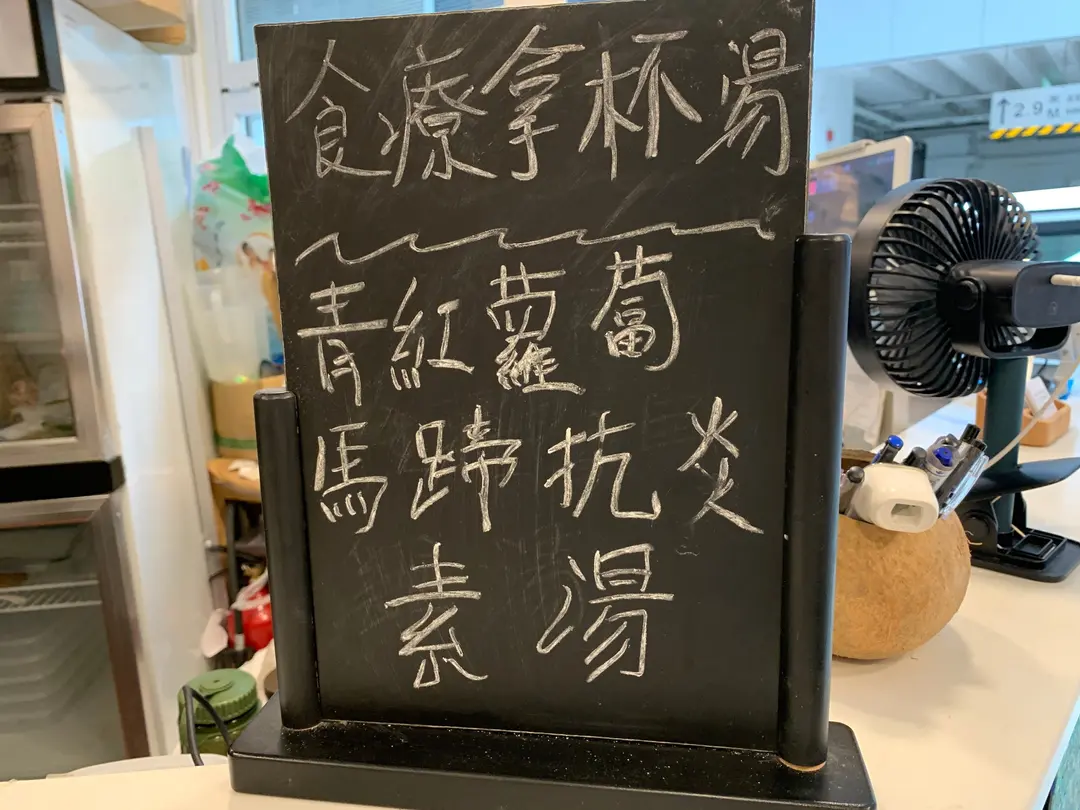 食療拿杯湯
青紅蘿蔔
馬蹄抗炎
素湯
2.9 M